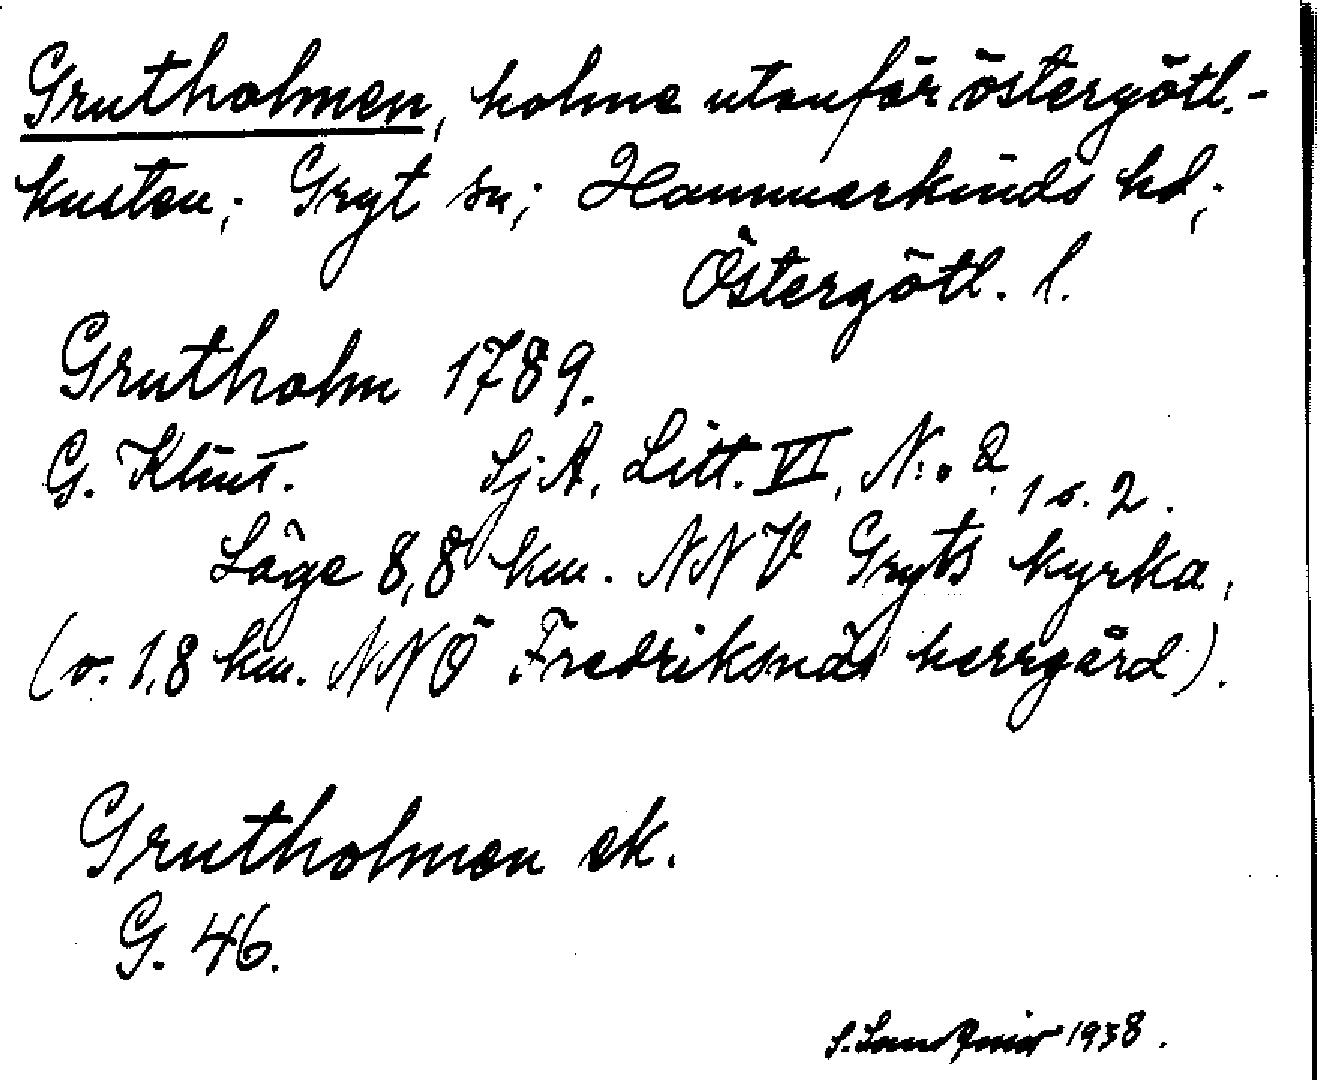 Grutholmen, holme utanför östergötl.-
kusten; Gryt sn; Hammarkinds hd;
Östergötl. l.
Grutholm 1789.
G. Klint. SjA, Litt. VI, N:o 2, 1 o. 2.
Läge 8,8 km. NNV Gryts kyrka,
(o. 1,8 km. NNÖ Fredriksnäs herrgård).
Grutholmen ek.
G. 46.
S. 1938.